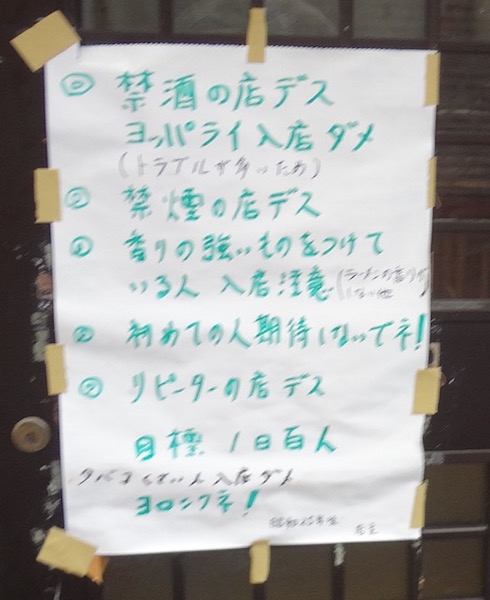 ◎ 禁酒の店デス
ヨッパライ入店ダメ
(トラブルが多いため)
◎ 禁煙の店デス
◎ 香りの強いものをつけて
いる人 入店注意 (ラーメンの香りが
しない他
◎ 初めての人期待しないでネ!
◎ リピーターの店デス
目標 1日百人
タバコくさい人入店ダメ
ヨロシクネ!
昭和25年生 店主